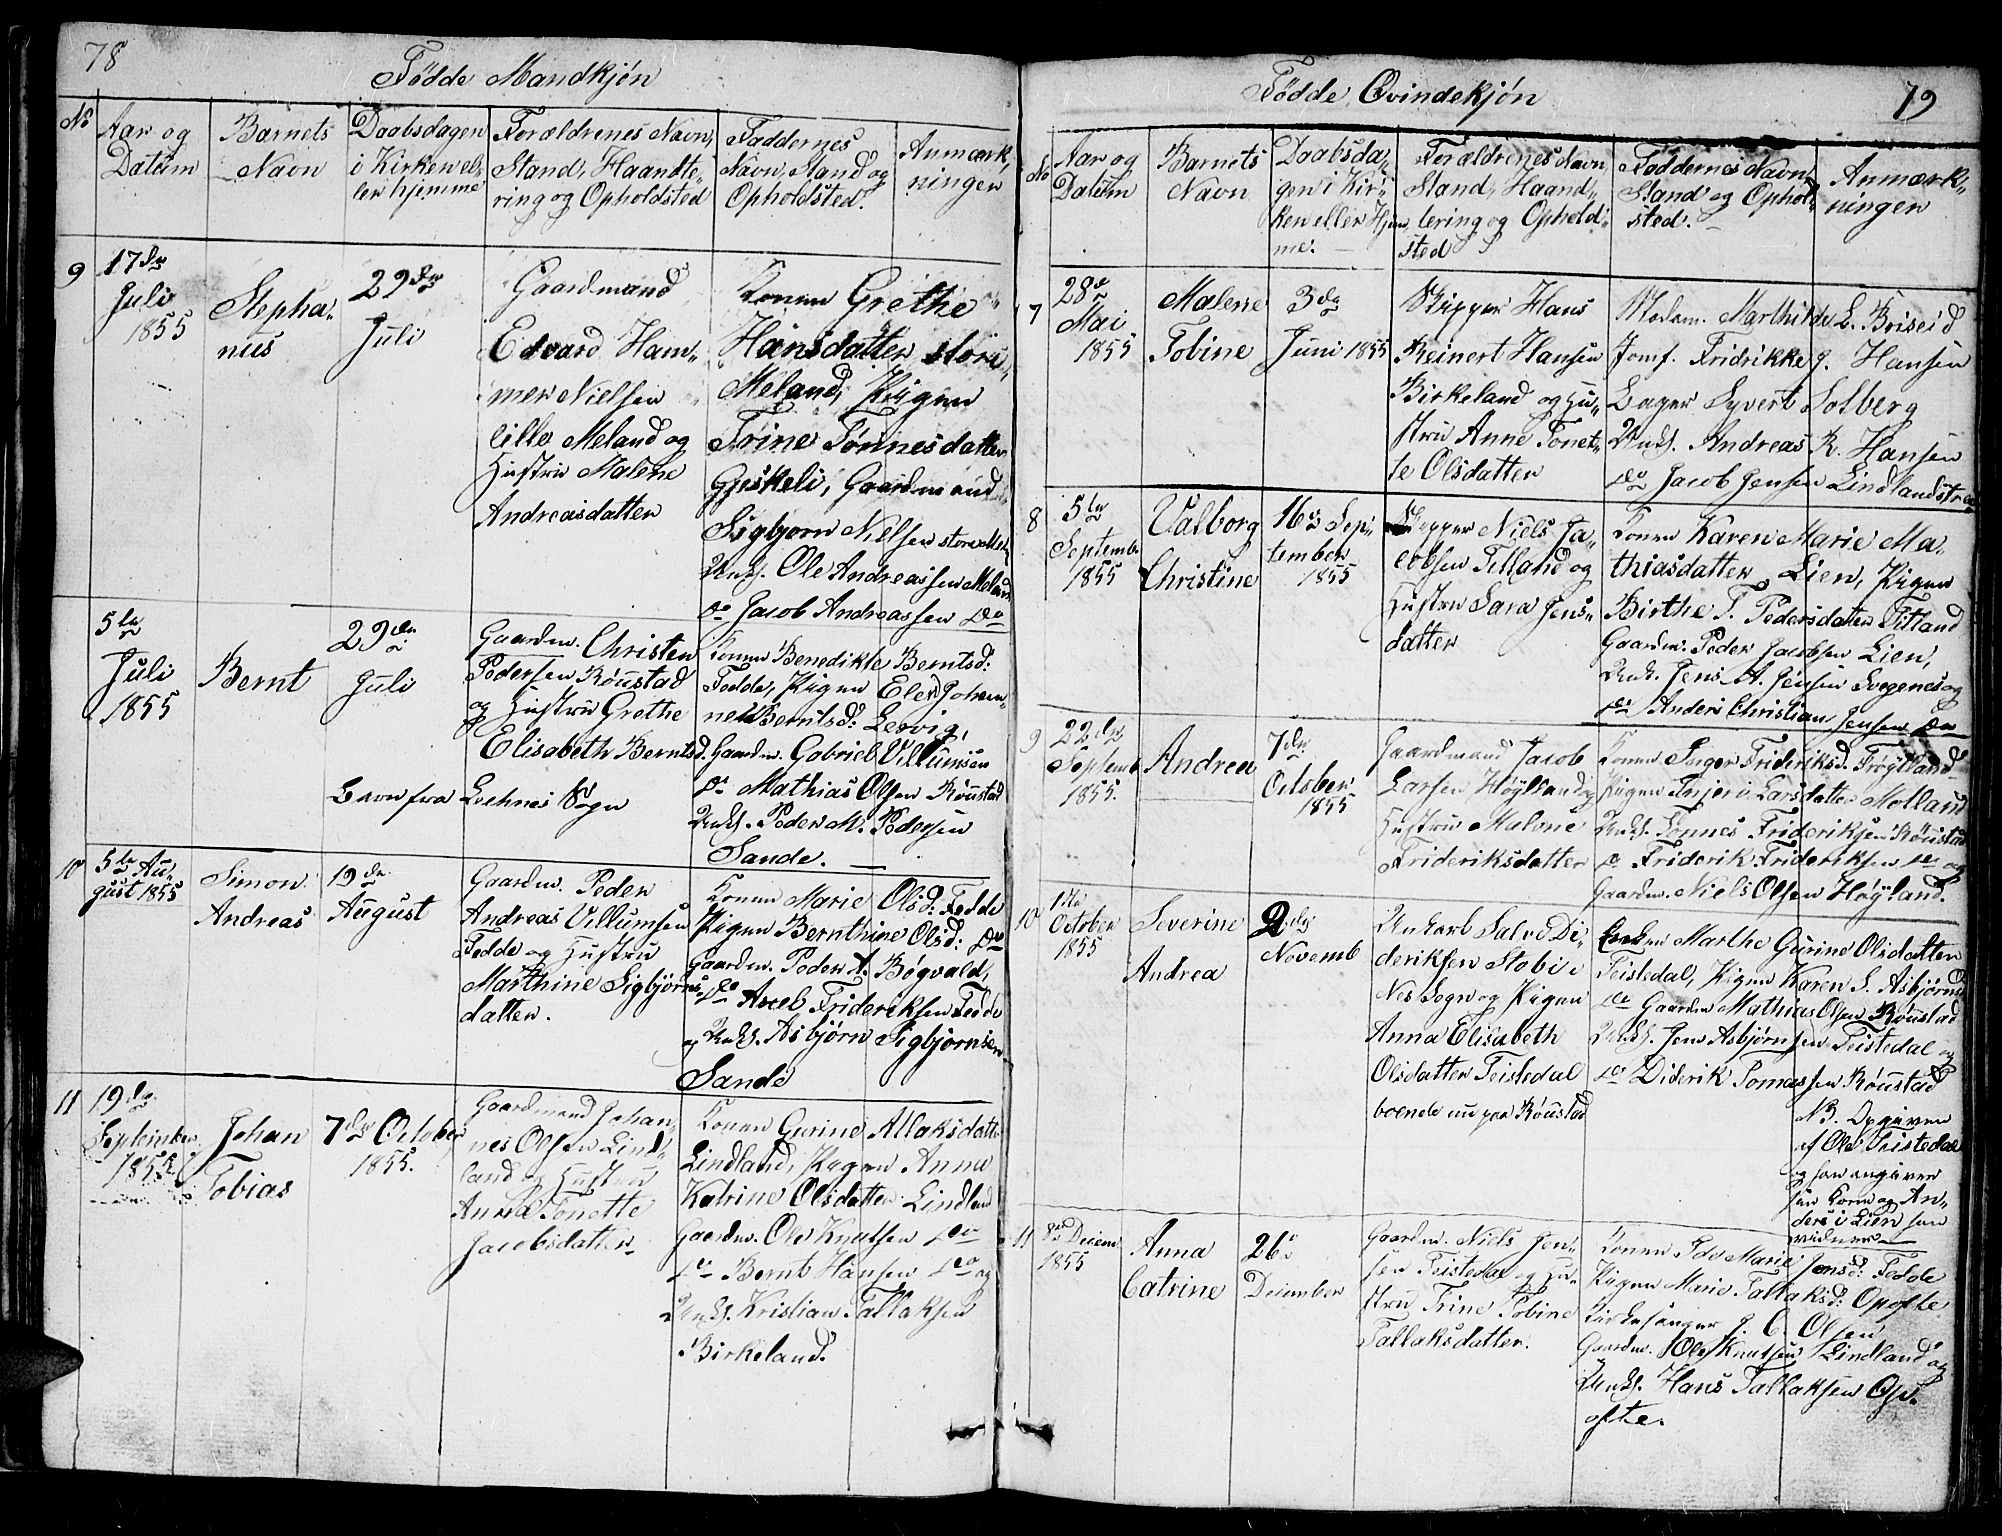 78
Fødde Mandkjøn
No
Aar og
Datum
Barnets
Navn
Daabsdagen
i Kirken el-
ler hjemme
Forældrenes Navn,
Stand, Haandte-
ring og Opholdsted
Faddernes
Navn, Stand og
Opholdsted.
Anmærk-
ningen
9
17de
Juli
1855
Stepha-
nus
29de
Juli
Gaardmand
Edvard Ham-
mer Nielsen
lille Meland og
Hustru Malene
Andreasdatter
Konen Grethe
Hansdatter store
Meland, Pigen
Trine Tønnesdatter
Gjeskeli, Gaardmand
Sigbjørn Nielsen store Meland
Unk. Ole Andreassen Meland
do Jacob Andreassen do
5te
Juli
1855
Bernt
29de
Juli
Gaardm. Christen
Pedersen Røustad
og Hustru Grethe
Elisabeth Berntsd.
Konen Benedikte Berntsd:
Fedde, Pigen Elen Johan-
ne Berntsd: Lervig,
Gaardm. Gabriel Villumsen
do Mathias Olsen Røustad
Unk. Peder M. Pedersen
Sande.
Sogn
10
5te Au-
gust 1855
Simon
Andreas
19de
August
Gaardm. Peder
Andreas Villumsen
Fedde og Hustru
Marthine Sigbjørns-
datter.
Konen Marie Olsd: Fedde
Pigen Bernthine Olsd: do
Gaardm. Peder A. Bøgvald,
do Axel Frideriksen Fedde
og Unk. Asbjørn Sigbjørnsen
Sande
11
19de
September
1855.
Johan
Tobias
7de October
1855.
Gaardmand Johan-
nes Olsen Lind-
land og Hustru
Anna Tonette
Jacobsdatter
Konen Gurine Allaksdatter
Lindland, Pigen Anna
Katrine Olsdatter Lindland
Gaardm. Ole Knutsen do
do Bernt Hansen do og
Unk. Kristian Tallaksen
Birkeland.
79
Fødde Qvindekjøn
No
Aar og
Datum
Barnets
Navn
Daabsda-
gen i Kir-
ken eller Hjem
me.
Forældrenes Navn,
Stand, Haand-
tering og Ophold-
sted
Faddernes Navn
Stand og Ophol-
sted.
Anmærk-
ningen
7
28de
Mai
1855
Malene
Tobine
3de
Juni 1855
Skipper Hans
Reinert Hansen
Birkeland og Hu-
stru Anne Tonet-
te Olsdatter
Madam. Marthilde L. Briseid
Jomf. Fridrikke J. Hansen
Syvert Solberg
Unk. Andreas R. Hansen
do Jacob Jensen Lindlandstrø
8
5te
Septemb
1855
Valborg
Christine
16de Sep-
tember
1855
Skipper Niels Ja-
cobsen Titland og
Hustru Sara Jens-
datter
Konen Karen Marie Ma-
thiasdatter Lien, Pigen
Birthe T. Pedersdatter Titland
Gaardm. Peder Jacobsen Lien,
Unk. Jens A. Jensen Svegenes og
do Anders Christian Jensen do
9
22de
Septemb
1855.
Andrea
7de
October
1855
Gaardmand Jacob
Larsen Høyland og
Hustru Malene
Frideriksdatter
Konen Inger Frideriksd. Frøytland
Pigen Larsdatter Molland
Unk. Tønnes Frideriksen Røustad
do Friderik Frideriksen do og
Gaardm. Niels Olsen Høyland.
10
1ste
October
1855
Severine
Andrea
2de
Novemb
Unkarl Salve Di-
deriksen Stobi i
Nes Sogn og Pigen
Anna Elisabeth
Olsdatter Teistedal
boende nu paa Røustad
Marthe Gurine Olsdatter
Teistedal, Pigen Karen S. Asbjørnsd
do Gaardm Mathias Olsen Røustad
Unk. Jens Asbjørnsen Teistedal og
do Diderik Tomassen Røustad
NB. Opgiven
af Ole Teistedal
og som angiver
sin Kone og An-
ders i Lien som
vidner
11
8de Decem
1855
Anna
Catrine
26de
December
Gaardm. Niels Jen-
sen Teistedal og Hu-
stru Trine Tobine
Tallaksdatter.
Konen Ida Marie Jensd: Fedde
Pigen Marie Tallaksd: Opofte
Kirkesanger J. C. Olsen
Gaardm. Ole Knutsen Lindland og
Unk. Hans Tallaksen Op-
ofte.